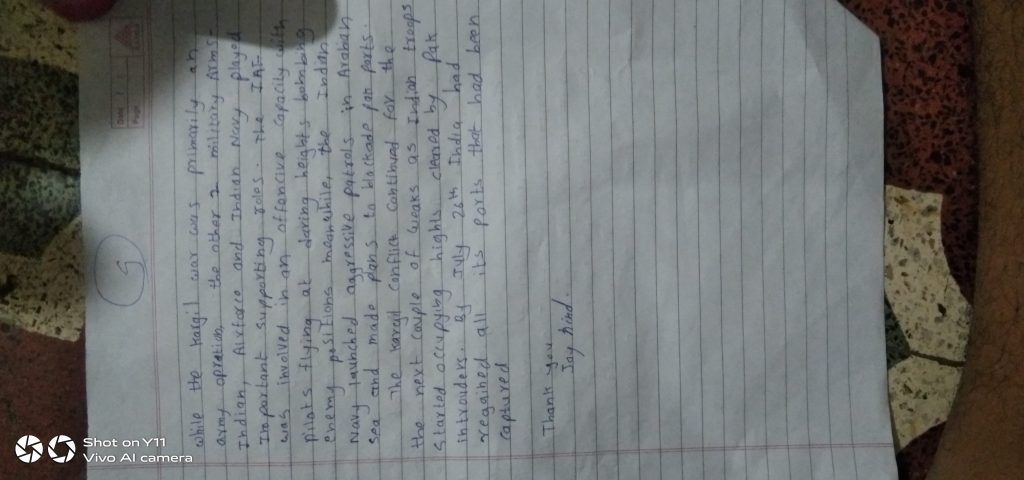 5
Date
Page
while the kargil war was primarily an
army opration, the other 2 military arms-
Indian, Airforce and Indian Navy played
Important supporting roles. The IAF
was involved in an offancive capacity with
pilots flying at daring heights bombing
enemy positions meanwhile, the Indian
Navy launched aggressive patrols in Arabian
sea and made plans to blockade pan ports.
The kargil conflict continued for the
the next couple of weaks as Indian troops
started occupying hights cleared by pak
introuders. By July 26th India had
regained all its ports that had been
captured
Thank you
Jay hind.
Shot on Y11
Vivo AI camera